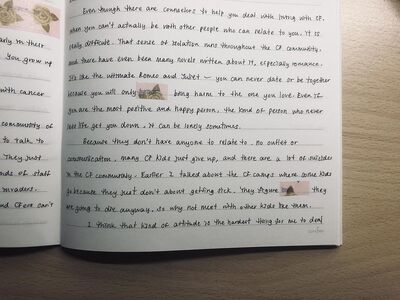 early in their
You grow up
with cancer
community of
to talk to
They just
kinds of staff
invaders.
and CFers can't
Even though there are counselors to help you deal with living with CF,
when you can't actually be with other people who can relate to you. It is
really difficult. That sense of isolation runs throughout the CF community,
and there have even been many novels written about it, especially romance.
It's like the ultimate Romeo and Juliet — you can never date or be together
because you will only bring harm to the one you love. Even if
you are the most positive and happy person, the kind of person who never
lets life get you down, it can be lonely sometimes.
Because they don't have anyone to relate to, no outlet or
communication, many CF kids just give up, and there are a lot of suicides
in the CF community. Earlier I talked about the CF camps where some kids
go because they just don't about getting sick. They figure they
are going to die anyway, so why not meet with other kids like them.
I think that kind of attitude is the hardest thing for me to deal